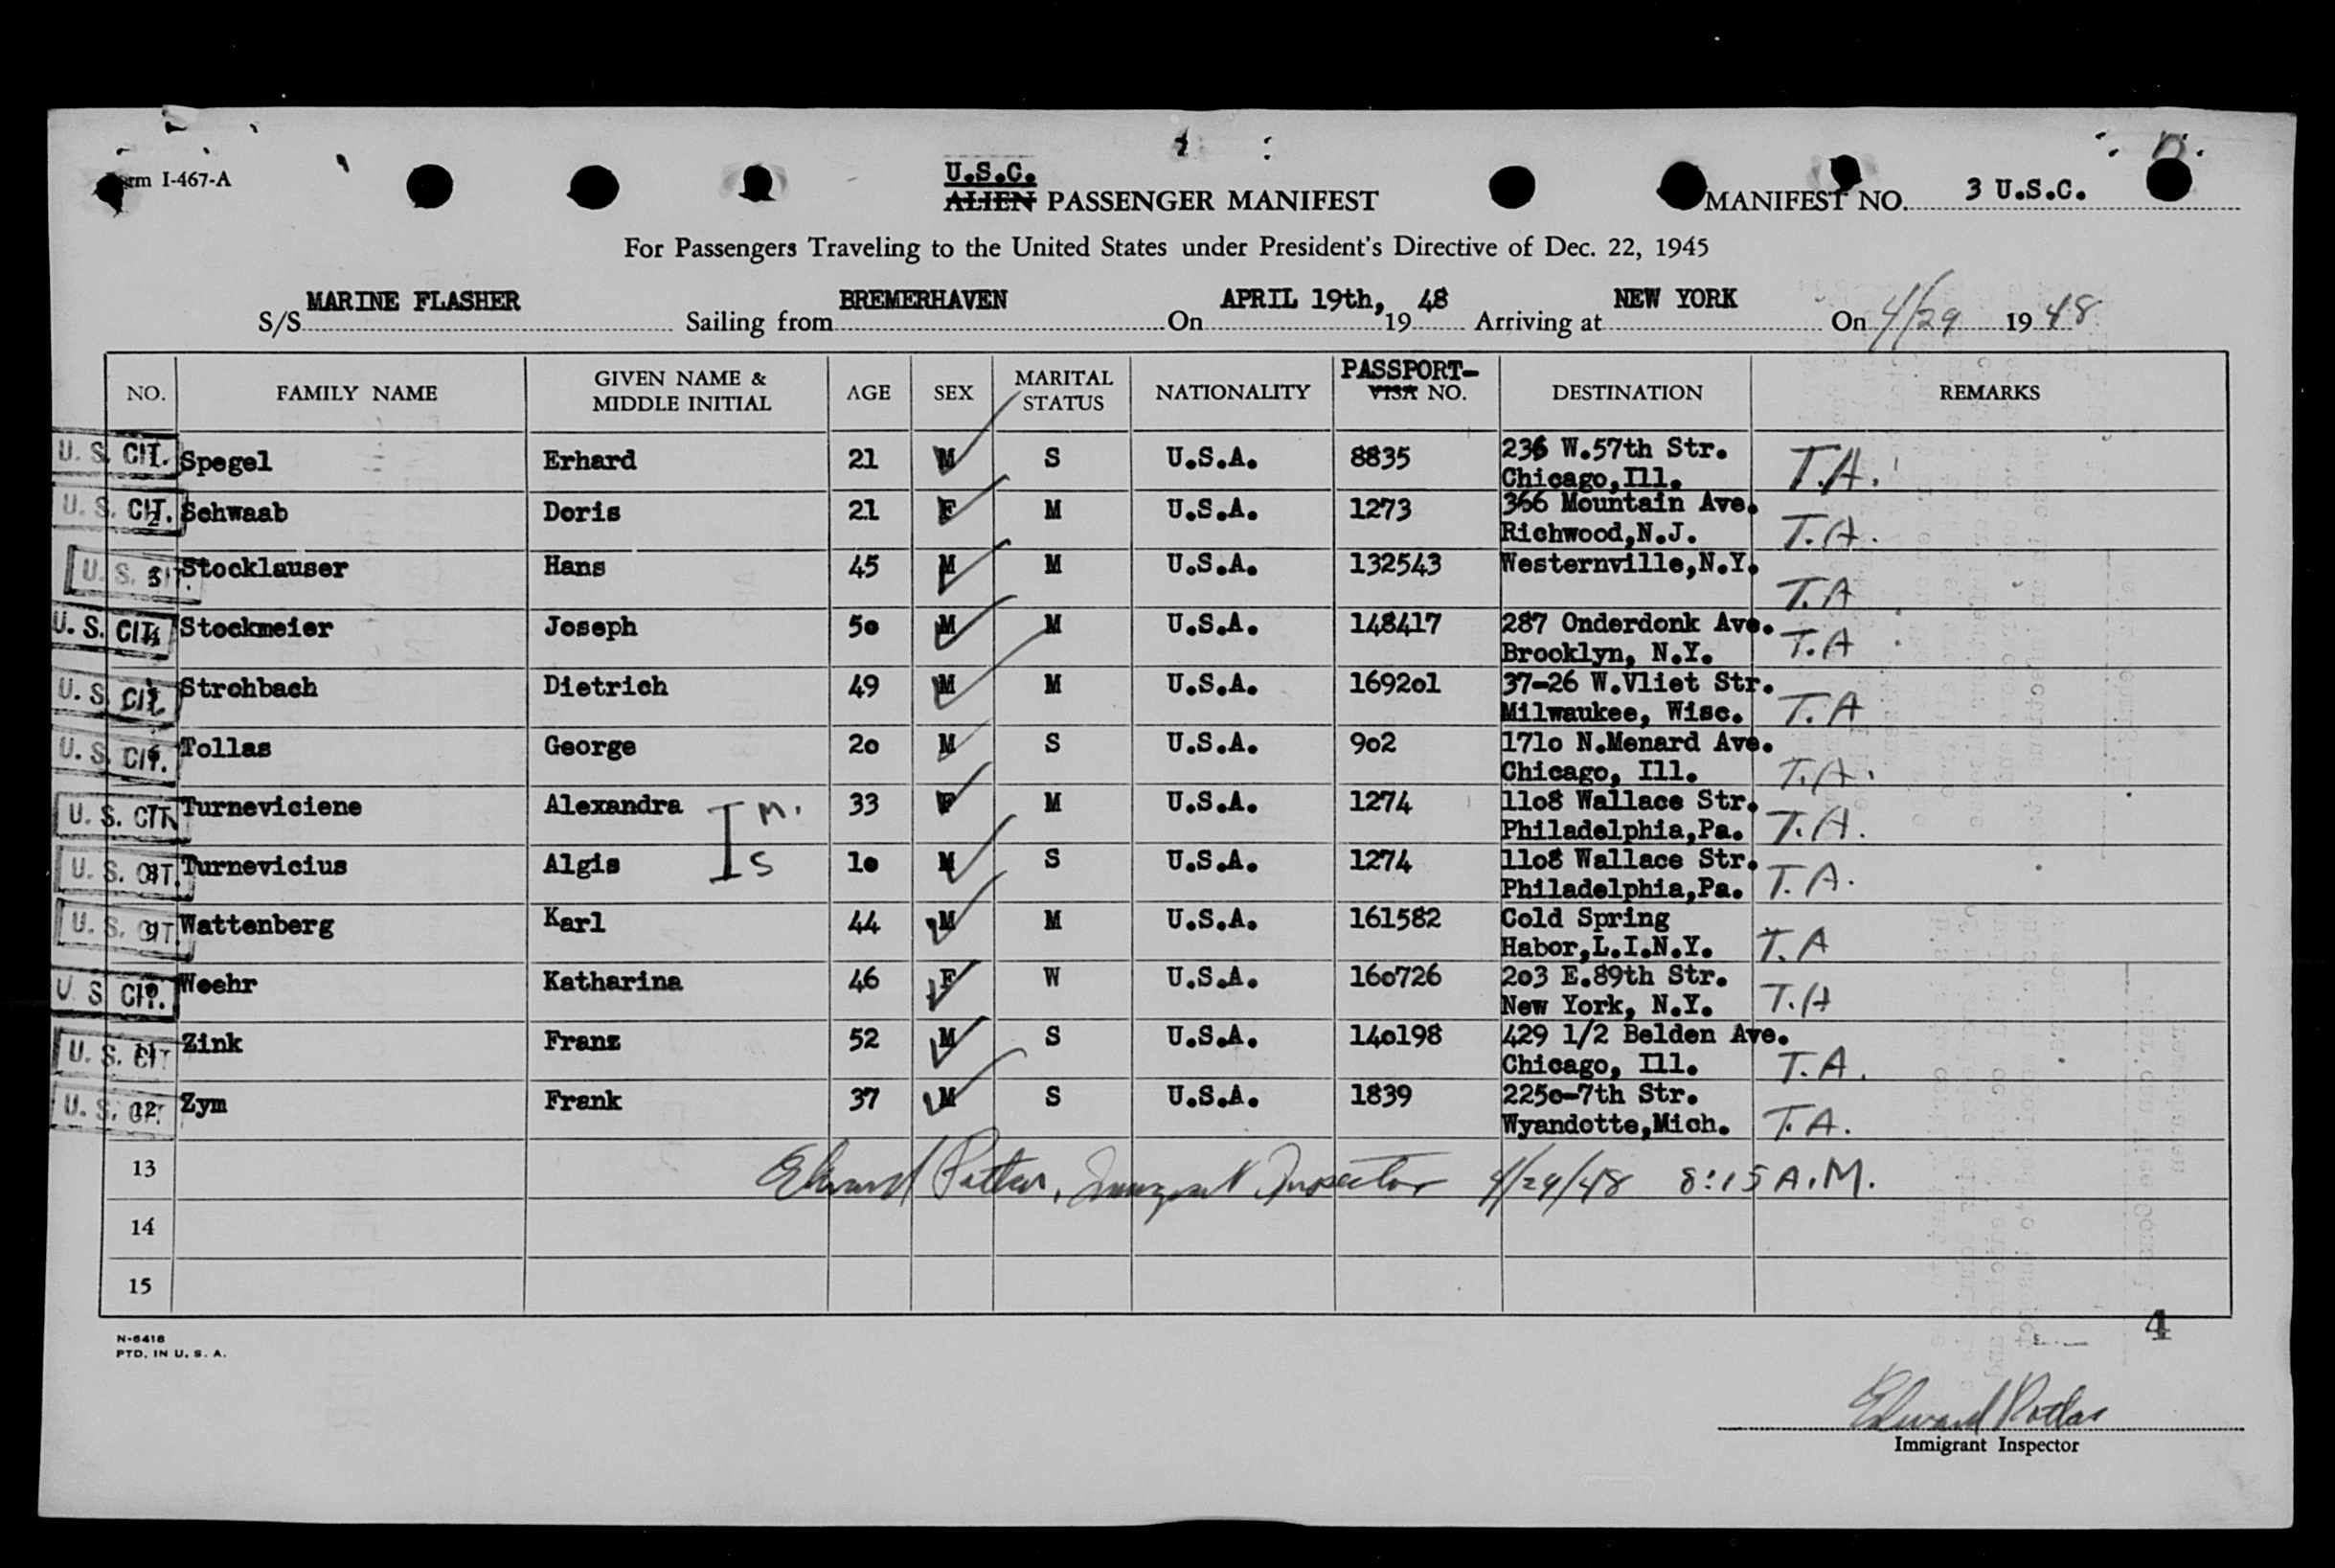 Form I-467-A
U.S.C.
ALIEN PASSENGER MANIFEST
MANIFEST NO. 3 U.S.C.
For Passengers Traveling to the United States under President's Directive of Dec. 22, 1945
S/S MARINE FLASHER Sailing from BREMERHAVEN On APRIL 19th, 19 48 Arriving at NEW YORK On 4/29 19 48
NO. FAMILY NAME GIVEN NAME & MIDDLE INITIAL AGE SEX MARITAL STATUS NATIONALITY PASSPORT- VISA NO. DESTINATION REMARKS
U. S. CIT. Spegel Erhard 21 M S U.S.A. 8835 236 W.57th Str. Chicago,Ill. T.A.
U. S. CIT. 2 Schwaab Doris 21 F M U.S.A. 1273 366 Mountain Ave. Richwood,N.J. T.A.
U. S. CIT. 3 Stocklauser Hans 45 M M U.S.A. 132543 Westernville,N.Y. T.A
U. S. CIT. 4 Stockmeier Joseph 5o M M U.S.A. 148417 287 Onderdonk Ave. Brooklyn, N.Y. T.A
U. S. CIT. Strohbach Dietrich 49 M M U.S.A. 1692o1 37-26 W.Vliet Str. Milwaukee, Wisc. T.A
U. S. CIT. Tollas George 2o M S U.S.A. 9o2 171o N.Menard Ave. Chicago, Ill. T.A.
U. S. CIT. 7 Turneviciene Alexandra M. 33 F M U.S.A. 1274 11o8 Wallace Str. Philadelphia,Pa. T.A.
U. S. CIT. 8 Turnevicius Algis S 1o M S U.S.A. 1274 11o8 Wallace Str. Philadelphia,Pa. T.A.
U. S. CIT. 9 Wattenberg Karl 44 M M U.S.A. 161582 Cold Spring Habor,L.I.N.Y. T.A
U S CIT. Weehr Katharina 46 F W U.S.A. 16o726 2o3 E.89th Str. New York, N.Y. T.A
U. S. CIT 11 Zink Franz 52 M S U.S.A. 14o198 429 1/2 Belden Ave. Chicago, Ill. T.A.
U. S. CIT. 12 Zym Frank 37 M S U.S.A. 1839 225o-7th Str. Wyandotte,Mich. T.A.
13 Edward Inspector 4/29/48 8:15 A.M.
14
15
N-6416
PTD. IN U. S. A.
4
Edward
Immigrant Inspector